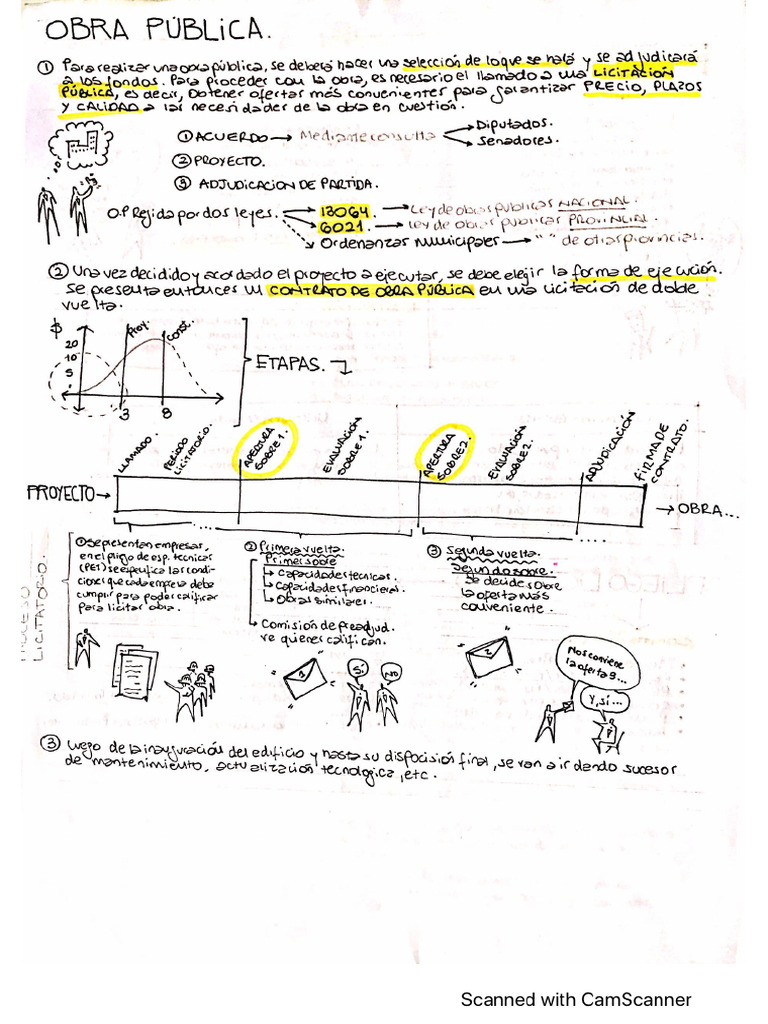 OBRA PÚBLICA.
① Para realizar una obra pública, se deberá hacer una selección de lo que se hará y se adjudicará
a los fondos. Para proceder con la obra, es necesario el llamado a una LICITACIÓN
PÚBLICA, es decir, obtener ofertas más convenientes para garantizar PRECIO, PLAZOS
Y CALIDAD a las necesidades de la obra en cuestión.
① ACUERDO → Mediante consulta
Diputados.
Senadores.
② PROYECTO.
③ ADJUDICACION DE PARTIDA.
O.P Regida por dos leyes.
13064. → Ley de obras publicas NACIONAL.
6021. → Ley de obras publicas PROVINCIAL.
Ordenanzas Municipales → " " de otras provincias.
② Una vez decidido y acordado el proyecto a ejecutar, se debe elegir la forma de ejecución.
Se presenta entonces un CONTRATO DE OBRA PÚBLICA en una licitación de doble
vuelta.
$
Proy.
Const.
20
10
5
3
8
ETAPAS.
LLAMADO.
PERÍODO LICITATORIO.
APERTURA SOBRE 1.
EVALUACIÓN SOBRE 1.
APERTURA SOBRE 2.
EVALUACIÓN SOBRE 2.
ADJUDICACIÓN
FIRMA DE CONTRATO.
PROYECTO →
→ OBRA...
PROCESO LICITATORIO.
① Se presentan empresas,
en el pliego de esp. tecnicas
(PET) se especifica las condi-
ciones que cada empresa debe
cumplir para poder calificar
para licitar obra.
② Primera vuelta.
Primer sobre
→ Capacidades tecnicas.
→ Capacidades financieras.
→ Obras similares.
→ Comisión de preadjud.
ve quienes califican.
③ Segunda vuelta.
Segundo sobre.
Se decide sobre
la oferta más
conveniente.
1
SÍ
NO
2
Nos conviene
la oferta 9...
Y, sí...
③ Luego de la inauguración del edificio y hasta su dispocisión final, se van a ir dando sucesor
de mantenimiento, actualización tecnologica, etc.
Scanned with CamScanner